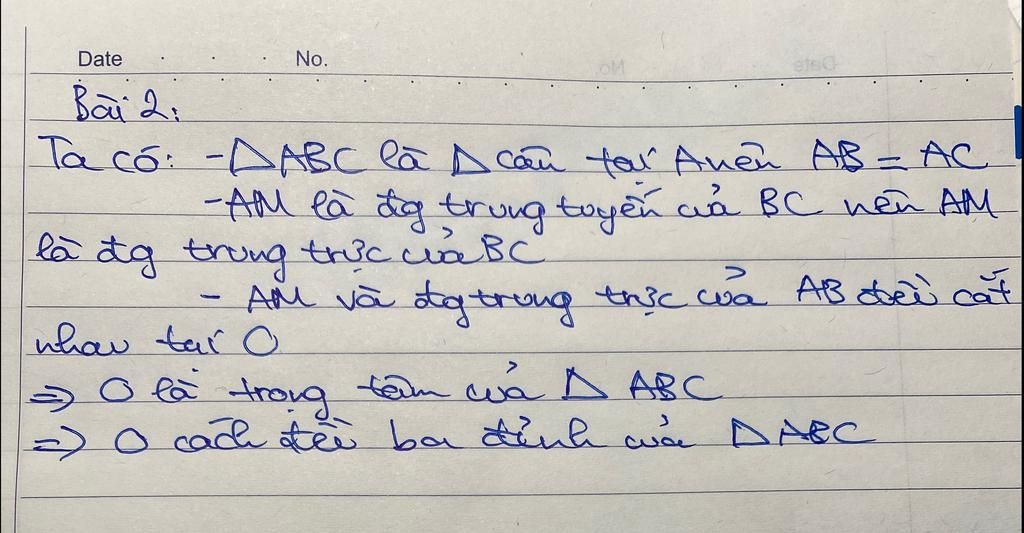 Date No.
Bài 2:
Ta có: - △ABC là △ cân tại A nên AB = AC
- AM là đg trung tuyến của BC nên AM
là đg trung trực của BC
- AM và đg trung trực của AB đều cắt
nhau tại O
=> O là trọng tâm của △ ABC
=> O cách đều ba đỉnh của △ ABC